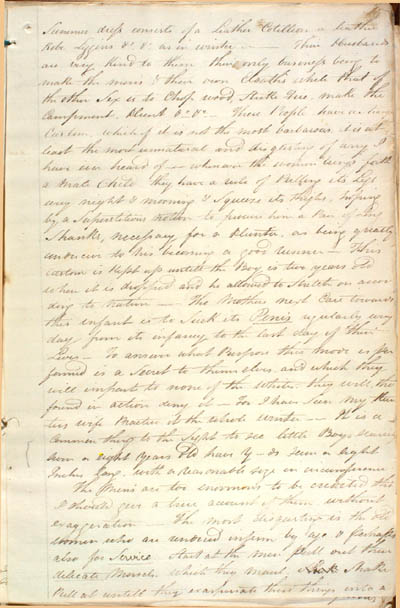 Summer dress consists of a leather Cotillion a leather
Robe Leggins &c. &c. as in winter — Their Husbands
are very kind to them their only business being to
make the mens & their own Cloaths while that of
the other Sex is to Chop wood, Strike Fire, make the
Campement, Hunt &c. &c. — These People have a
Custom, which if it is not the most barbarous, it is at
least the most unnatural and disgusting of any I
have ever heard of — whenever the women brings forth
a Male Child they have a rule of Pulling its legs
every night & morning & Squeeze its thighs, hoping
by a Superstitious notion to procure him a Pair of long
Shanks, necessary for a Hunter, as being greatly
conducive to his becoming a good runner — This
custom is kept up untill the Boy is two years old
when it is dropped and he allowed to Stretch on accor
ding to nature — The Mothers next Care towards
this infant is to Suck its Penis regularly every
day from its infancy to the last day of their
Lives — To answer what Purpose this move is per
formed is a Secret to themselves and which they
will impart to none of the Whites, they will tho
found in action deny it — For I have seen my Hun
ters wife Practice it the whole winter — It is a
Common thing to the Sight to see little Boys
from a eight years old have
Inches long, with a reasonable size in circumference
The Mens are too enormous to be credited tho
I should give a true account of them without
exaggeration — The most disgusting is the Old
women who are rendered infirm by age &
also for Service. Start at the men pull out their
delicate Morsels which they maul, Shake
Pull at untill they exasperate their things into a